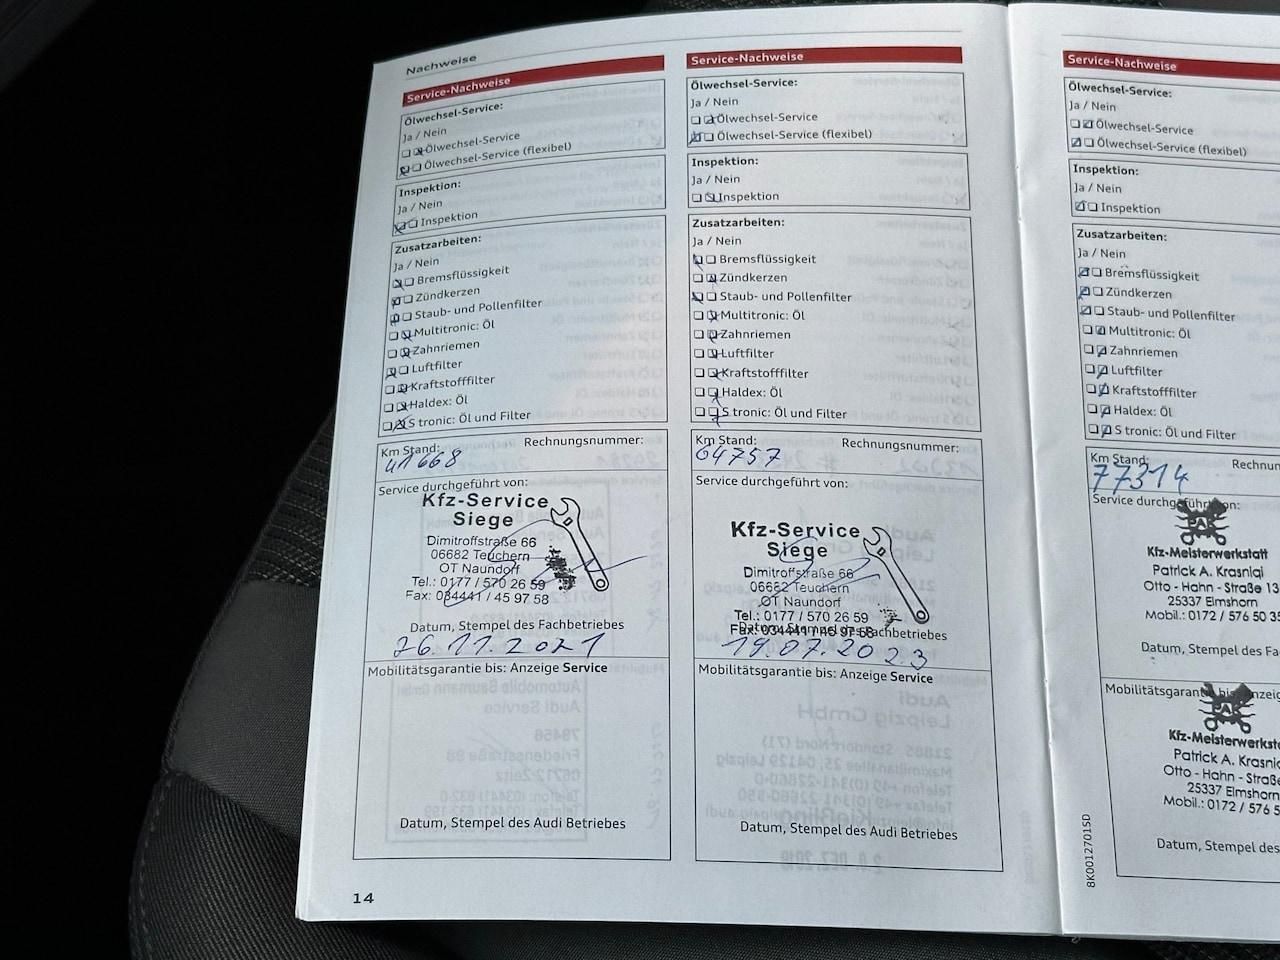 Nachweise
Service-Nachweise
Ölwechsel-Service:
Ja / Nein
Ölwechsel-Service
Ölwechsel-Service (flexibel)
Inspektion:
Ja / Nein
Inspektion
Zusatzarbeiten:
Ja / Nein
Bremsflüssigkeit
Zündkerzen
Staub- und Pollenfilter
Multitronic: Öl
Zahnriemen
Luftfilter
Kraftstofffilter
Haldex: Öl
S tronic: Öl und Filter
Km Stand: Rechnungsnummer:
41668
Service durchgeführt von:
Kfz-Service
Siege
Dimitroffstraße 66
06682 Teuchern
OT Naundorf
Tel.: 0177 / 570 26 59
Fax: 034441 / 45 97 58
Datum, Stempel des Fachbetriebes
26.11.2021
Mobilitätsgarantie bis: Anzeige Service
Datum, Stempel des Audi Betriebes
14
Service-Nachweise
Ölwechsel-Service:
Ja / Nein
Ölwechsel-Service
Ölwechsel-Service (flexibel)
Inspektion:
Ja / Nein
Inspektion
Zusatzarbeiten:
Ja / Nein
Bremsflüssigkeit
Zündkerzen
Staub- und Pollenfilter
Multitronic: Öl
Zahnriemen
Luftfilter
Kraftstofffilter
Haldex: Öl
S tronic: Öl und Filter
Km Stand: Rechnungsnummer:
64757
Service durchgeführt von:
Kfz-Service
Siege
Dimitroffstraße 66
06682 Teuchern
OT Naundorf
Tel.: 0177 / 570 26 59
Fax: 034441 / 45 97 58
Datum, Stempel des Fachbetriebes
19.07.2023
Mobilitätsgarantie bis: Anzeige Service
Datum, Stempel des Audi Betriebes
8K0012701SD
Service-Nachweise
Ölwechsel-Service:
Ja / Nein
Ölwechsel-Service
Ölwechsel-Service (flexibel)
Inspektion:
Ja / Nein
Inspektion
Zusatzarbeiten:
Ja / Nein
Bremsflüssigkeit
Zündkerzen
Staub- und Pollenfilter
Multitronic: Öl
Zahnriemen
Luftfilter
Kraftstofffilter
Haldex: Öl
S tronic: Öl und Filter
Km Stand:
77314
Service durchgeführt von:
PAK
Kfz-Meisterwerkstatt
Patrick A. Krasniqi
Otto - Hahn - Straße 13
25337 Elmshorn
Mobil.: 0172 / 576 50 35
Datum, Stempel des
Mobilitätsgarantie bis:
PAK
Patrick A.
Otto - Hahn - Straße
25337 Elmshorn
Mobil.: 0172 / 576 5
Datum, Stempel des